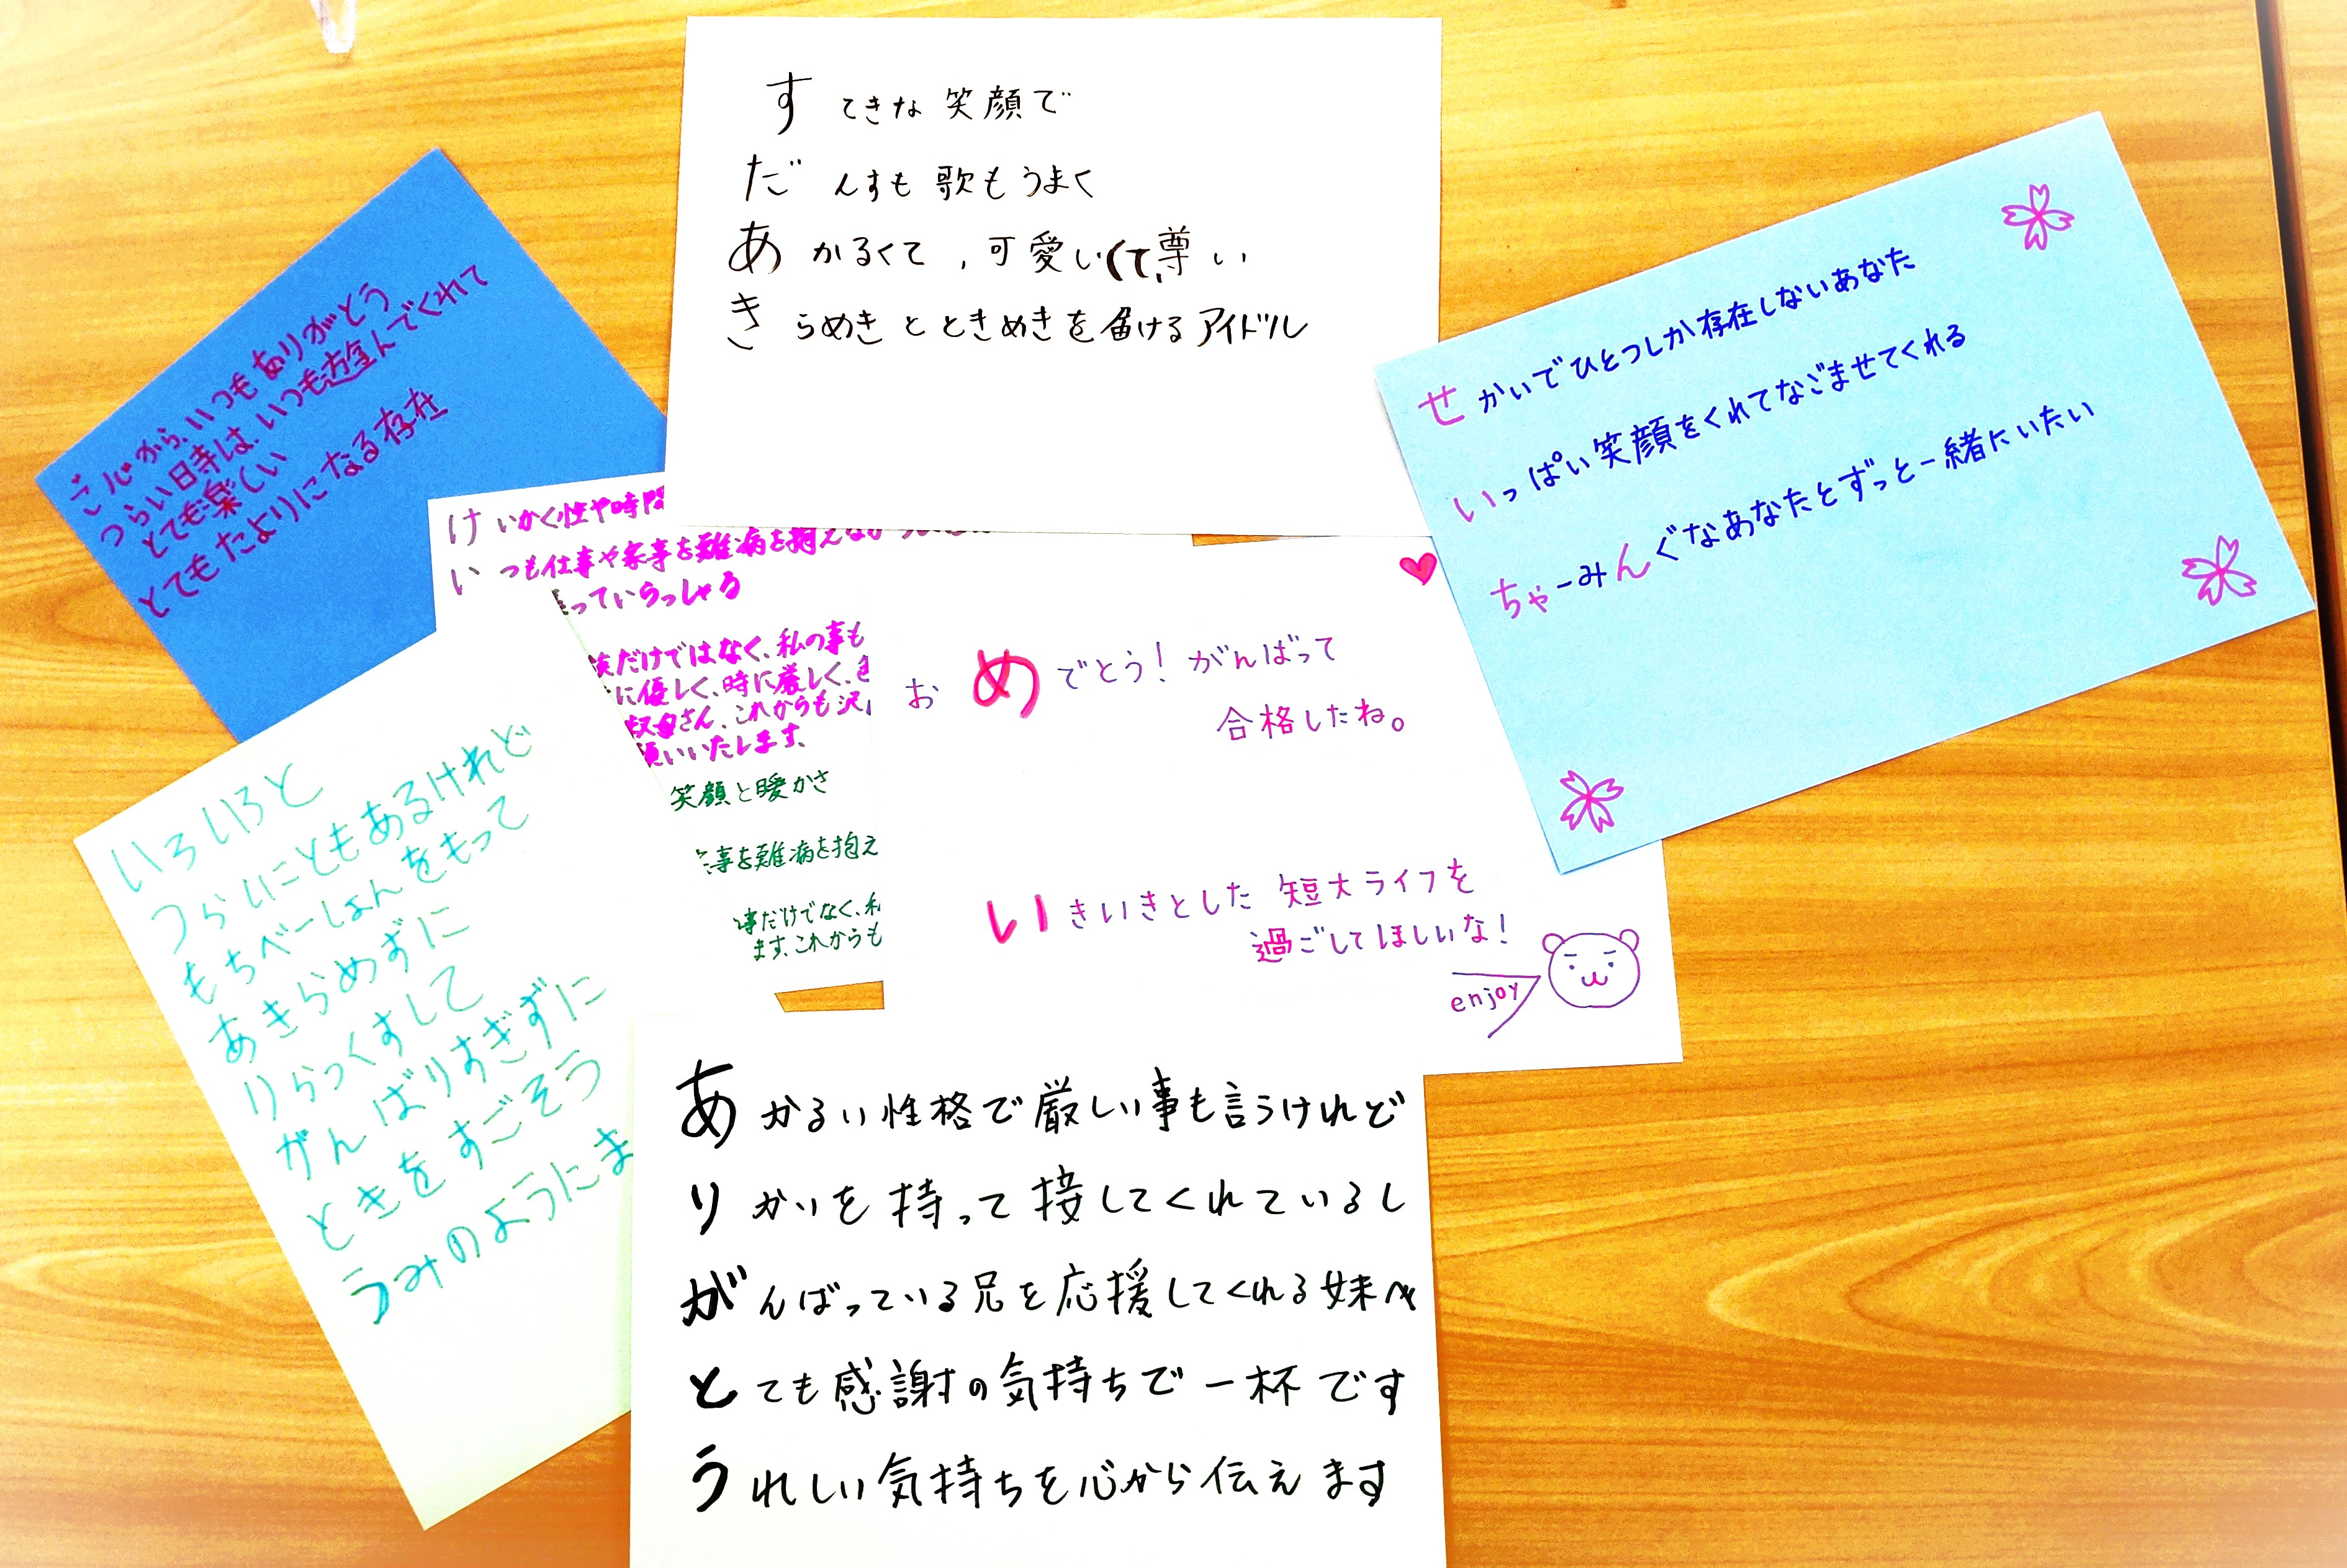 すてきな笑顔で
だんすも歌もうまく
あかるくて,可愛いくて、尊い
きらめきとときめきを届けるアイドル
心から、いつもありがとう
つらい時は、いつも遊んでくれて
とても楽しい
とてもたよりになる存在
せかいでひとつしか存在しないあなた
いっぱい笑顔をくれてなごませてくれる
ちゃーみんぐなあなたとずっと一緒にいたい
けいかく性や時間
いつも仕事や家事を難病を抱えなが
っていらっしゃる
だけではなく、私の事も
に優しく、時に厳しく、
叔母さん、これからも沢
願いいたします、
笑顔と暖かさ
事を難病を抱え
事だけでなく、私
ます、これからも
おめでとう!がんばって
合格したね。
いきいきとした短大ライフを
過ごしてほしいな!
enjoy
いろいろと
つらいこともあるけれど
もちべーしょんをもって
あきらめずに
りらっくすして
がんばりすぎずに
ときをすごそう
うみのようにま
あかるい性格で厳しい事も言うけれど
りかいを持って接してくれているし
がんばっている兄を応援してくれる妹へ
とても感謝の気持ちで一杯です
うれしい気持ちを心から伝えます